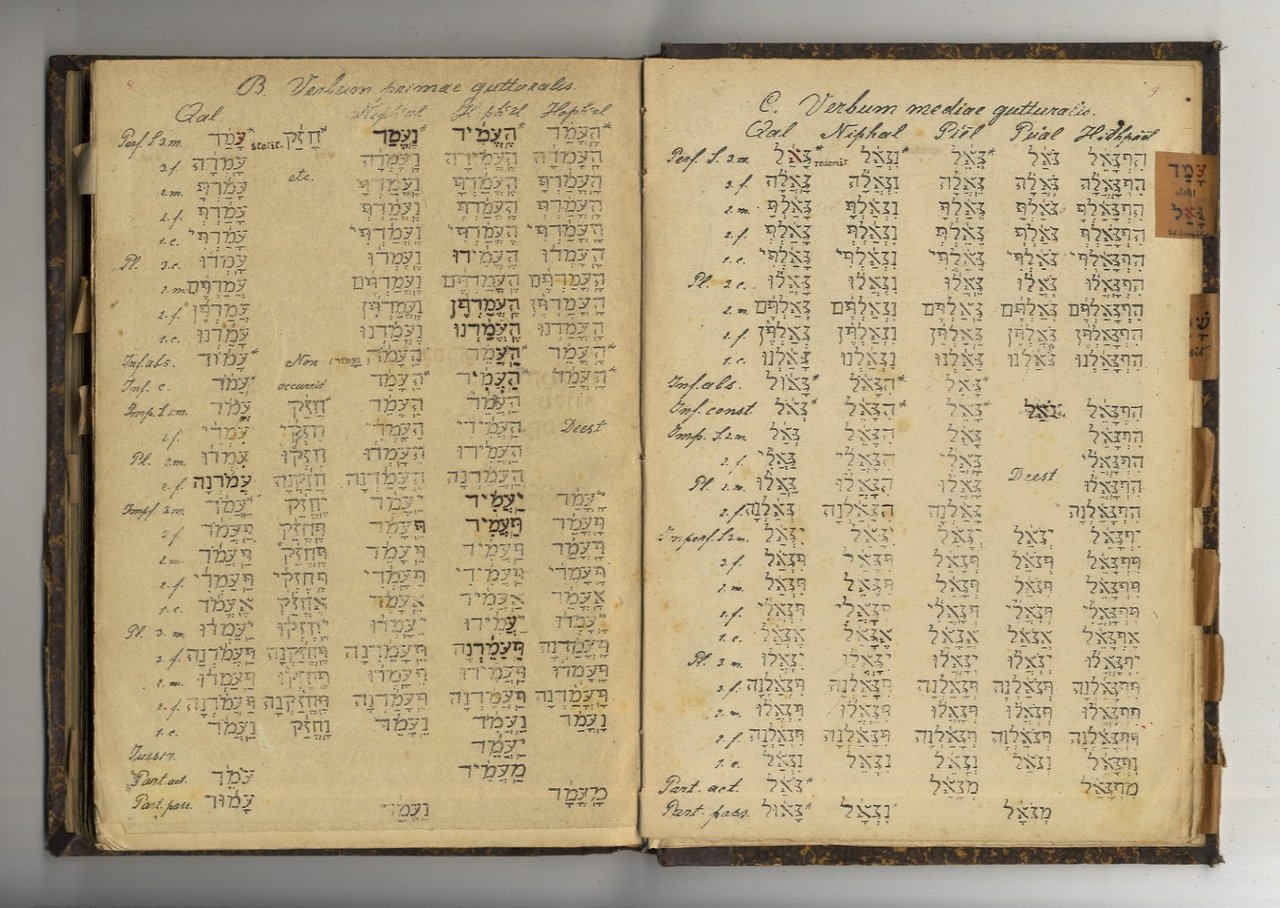 B. Verbum primae gutturalis.
Qal Niphal Hiphil Hophal
Perf. S. 3. m. עָמַד* stetit. חָזַק* נֶעֱמַד* הֶעֱמִיד* הָעֳמַד*
3. f. עמדה etc. נעמדה העמידה העמדה
2. m. עמדת נעמדת העמדת העמדת
2. f. עמדת נעמדת העמדת העמדת
1. c. עמדתי נעמדתי העמדתי העמדתי
Pl. 3. c. עמדו נעמדו העמידו העמדו
2. m. עמדתם נעמדתם העמדתם העמדתם
2. f. עמדתן נעמדתן העמדתן העמדתן
1. c. עמדנו נעמדנו העמדנו העמדנו
Inf. abs. עמוד* Non
Inf. c. עמד* occurrit העמד*
Imp. S. 2. m. עמד חזק* העמד העמד
2. f. עמדי חזקי העמדי העמידי Deest
Pl. 2. m. עמדו חזקו העמדו העמידו
2. f. עמדנה חזקנה העמדנה העמדנה
Impf. 3. m. יעמד* יחזק יעמד יעמיד יעמד
3. f. תעמד תחזק תעמד תעמיד תעמד
2. m. תעמד תחזק תעמד תעמיד תעמד
2. f. תעמדי תחזקי תעמדי תעמידי תעמדי
1. c. אעמד אחזק אעמד אעמיד אעמד
Pl. 3. m. יעמדו יחזקו יעמדו יעמידו יעמדו
3. f. תעמדנה תחזקנה תעמדנה תעמדנה תעמדנה
2. m. תעמדו תחזקו תעמדו תעמידו תעמדו
2. f. תעמדנה תחזקנה תעמדנה תעמדנה תעמדנה
1. c. נעמד נחזק נעמד נעמד נעמד
Jussiv. יעמד
Part. act. עמד מעמיד
Part. pass. עמוד נעמד מעמד
9
C. Verbum mediae gutturalis.
Qal Niphal Piël Pual Hithpaël
Perf. S. 3. m. גאל* redemit נגאל* גאל* גאל התגאל
3. f. גאלה נגאלה גאלה גאלה התגאלה
2. m. גאלת נגאלת גאלת גאלת התגאלת
2. f. גאלת נגאלת גאלת גאלת התגאלת
1. c. גאלתי נגאלתי גאלתי גאלתי התגאלתי
Pl. 3. c. גאלו נגאלו גאלו גאלו התגאלו
2. m. גאלתם נגאלתם גאלתם גאלתם התגאלתם
2. f. גאלתן נגאלתן גאלתן גאלתן התגאלתן
1. c. גאלנו נגאלנו גאלנו גאלנו התגאלנו
Inf. abs. גאול* הגאל* גאל*
Inf. const. גאל* הגאל* גאל* התגאל
Imp. S. 2. m גאל הגאל גאל התגאל
2. f. גאלי הגאלי גאלי Deest התגאלי
Pl. 2. m. גאלו הגאלו גאלו התגאלו
2. f. גאלנה הגאלנה גאלנה התגאלנה
Imperf. S. 3. m. יגאל יגאל יגאל יגאל יתגאל
3. f. תגאל תגאל תגאל תגאל תתגאל
2. m. תגאל תגאל תגאל תגאל תתגאל
2. f. תגאלי תגאלי תגאלי תגאלי תתגאלי
1. c. אגאל אגאל אגאל אגאל אתגאל
Pl. 3. m. יגאלו יגאלו יגאלו יגאלו יתגאלו
3. f. תגאלנה תגאלנה תגאלנה תגאלנה תתגאלנה
2. m. תגאלו תגאלו תגאלו תגאלו תתגאלו
2. f. תגאלנה תגאלנה תגאלנה תגאלנה תתגאלנה
1. c. נגאל נגאל נגאל נגאל נתגאל
Part. act. גאל* מגאל מתגאל
Part. pass. גאול* נגאל מגאל
עָמַד
stetit
גָּאַל
redemit